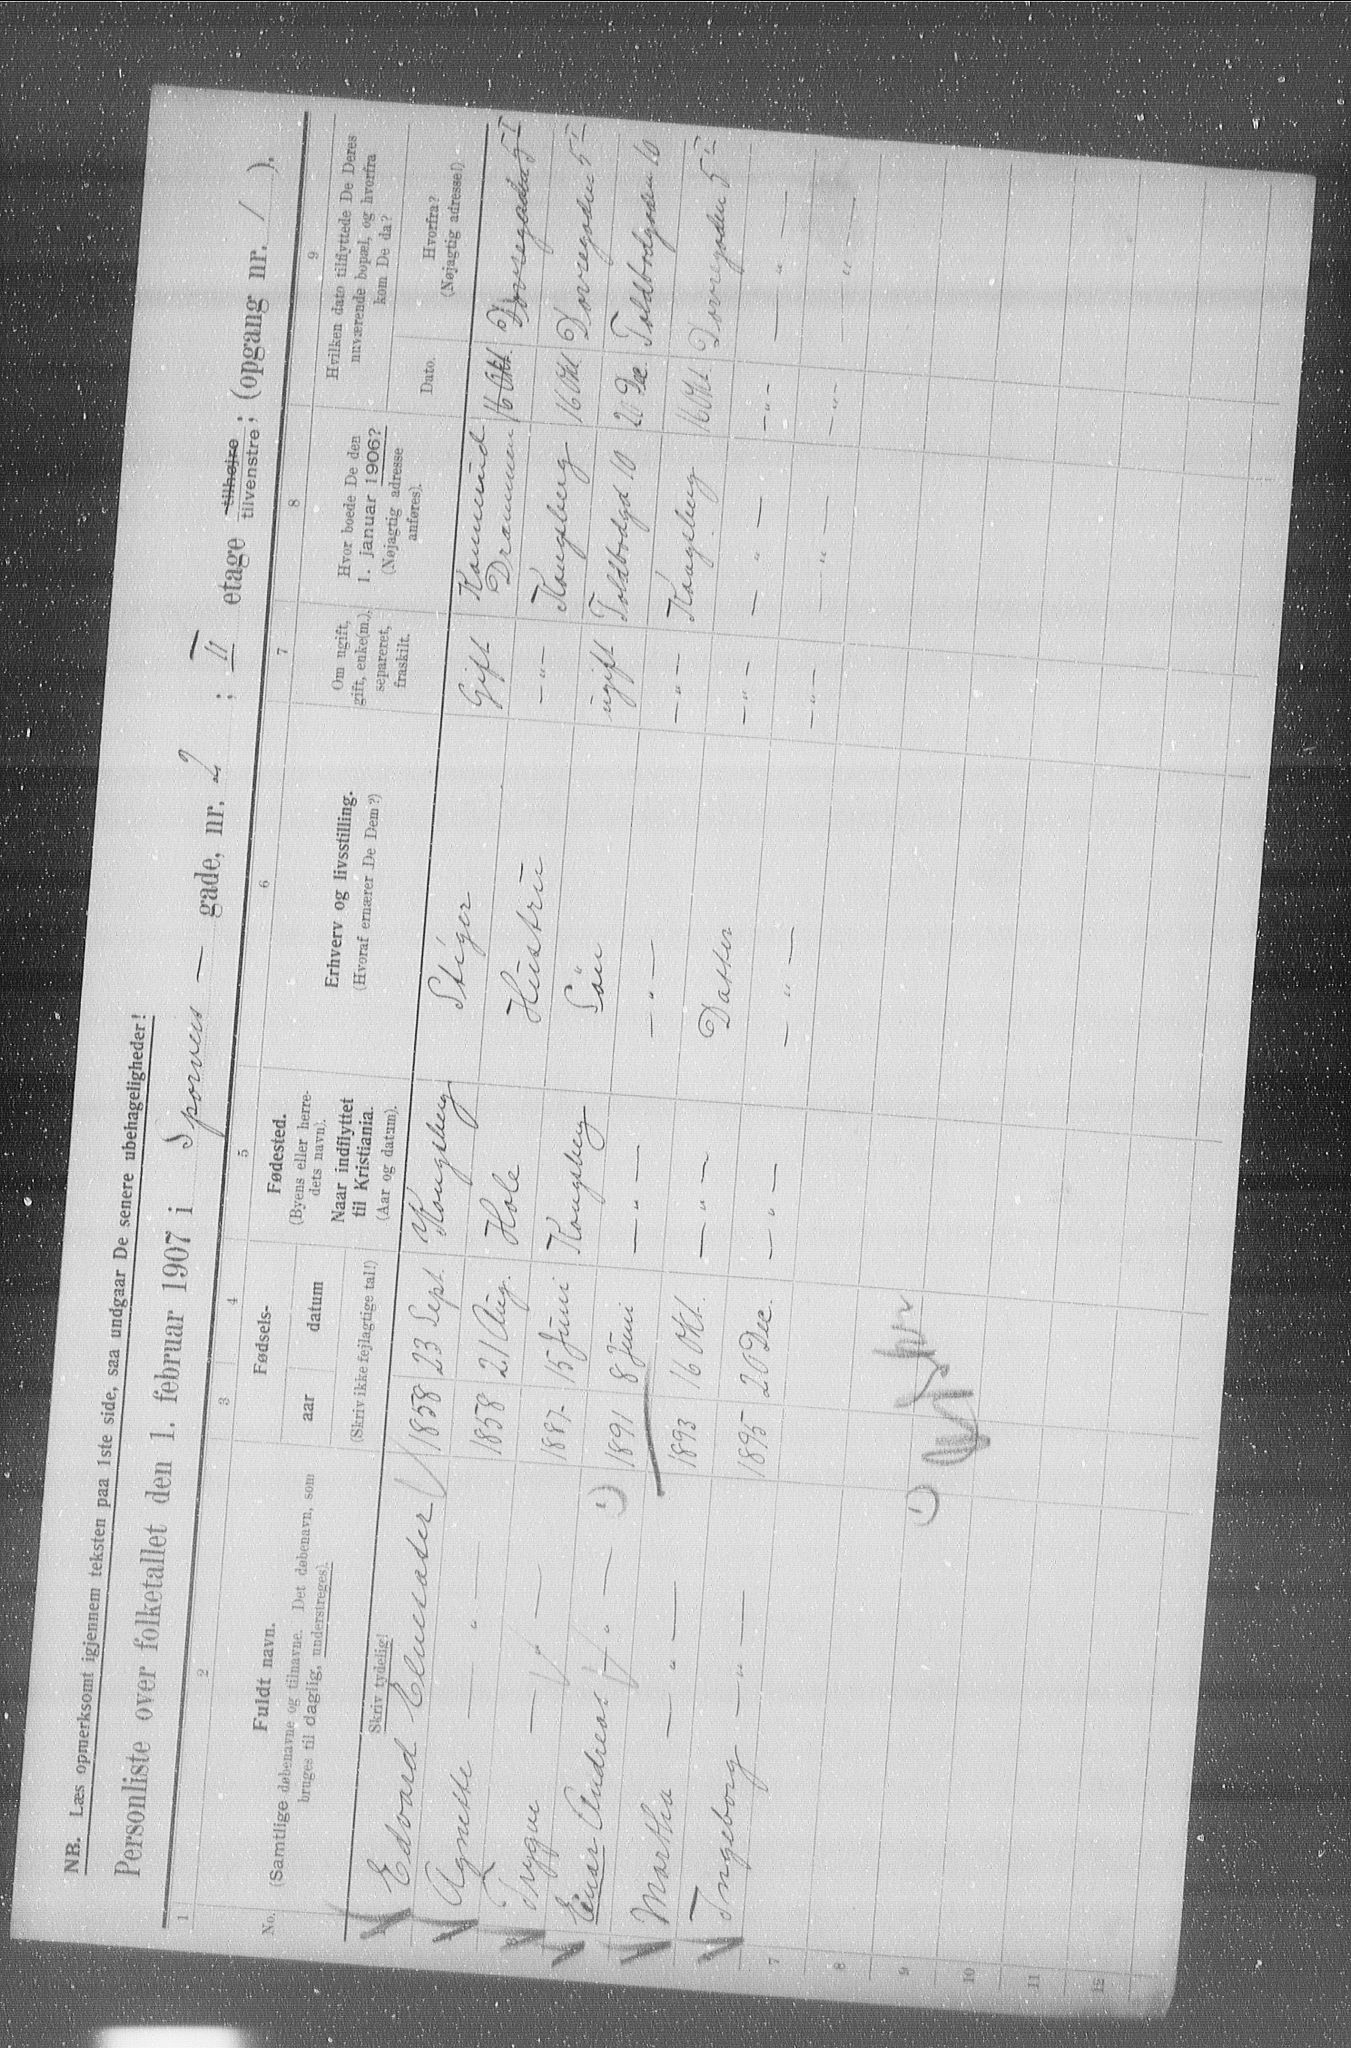 NB. Læs opmerksomt igjennem teksten paa 1ste side, saa undgaar De senere ubehageligheder!
Personliste over folketallet den 1. februar 1907 i Sporveis — gade, nr. 2 ; II etage tilhøjre tilvenstre; (opgang nr. / ).
1 2 3 4 5 6 7 8 9
No.
Fuldt navn.
(Samtlige døbenavne og tilnavne. Det døbenavn, som
bruges til daglig, understreges).
Skriv tydelig!
Fødsels-
aar datum
(Skriv ikke fejlagtige tal!)
Fødested.
(Byens eller herre-
dets navn).
Naar indflyttet
til Kristiania.
(Aar og datum).
Erhverv og livsstilling.
(Hvoraf ernærer De Dem?)
Om ugift,
gift, enke(m.),
separeret,
fraskilt.
Hvor boede De den
1. januar 1906?
(Nøjagtig adresse
anføres).
Hvilken dato tilflyttede De Deres
nuværende bopæl, og hvorfra
kom De da?
Dato.
Hvorfra?
(Nøjagtig adresse!)
Edvard 1858 23 Sept. Kongsberg Stiger Gift Drammen 16 Okt. Dovregaden 5 I
Agnette — " — 1858 21 Aug. Hole Hustru — " — Kongsberg 16 Okt Dovregaden 5 I
Trygve — " — 1887 15 Juni Kongsberg Sön ugift Toldbodgd 10 20 Dec. Toldbodgaden 10
Einar Andreas — " — 1) 1891 8 Juni — " — — " — — " — Kongsberg 16 Okt. Dovregaden 5 I
Martha — " — 1893 16 Okt. — " — Datter — " — — " — — " — — " —
Ingeborg — " — 1895 20 Dec. — " — — " — — " — — " — — " — — " —
7
8
9
1)
10
11
12